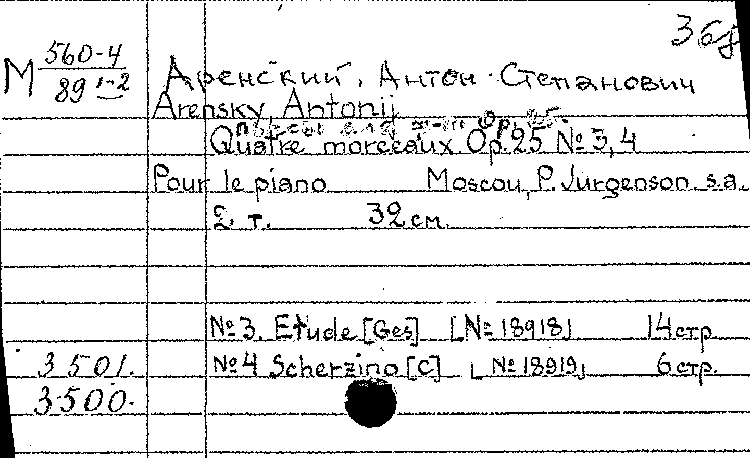 368
М 560-4
89 1-2
Аренский, Антон Степанович
Arensky, Antonij
Пьесы для ф-п Ор. 25.
Quatre morceaux Op. 25 № 3, 4
Pour le piano Moscou, P. Jurgenson. s.a.
2 т. 32 см.
№ 3. Etude [Ges] [№ 18918] 14 стр
3501. №4 Scherzino [C] [№ 18919] 6 стр.
3500.